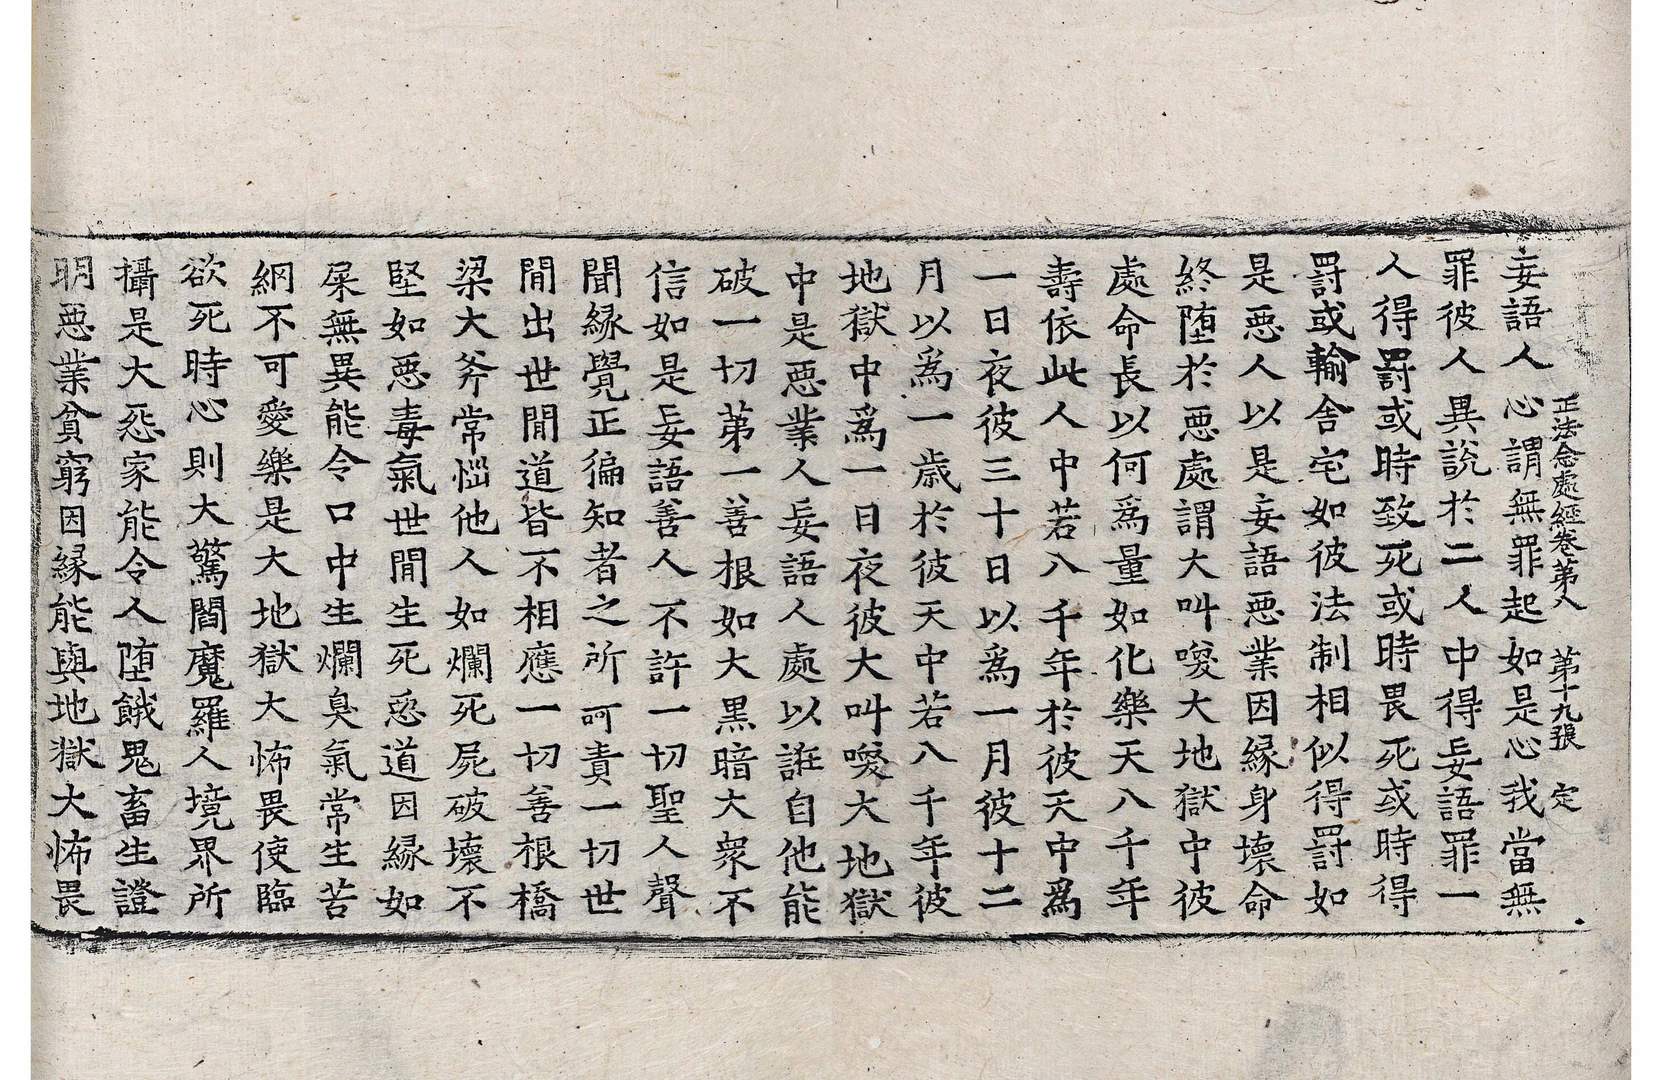 正法念處經卷第八　第十九張　定
妄語人心謂無罪起如是心我當無
罪彼人異說於二人中得妄語罪一
人得罸或時致死或時畏死或時得
罸或輸舍宅如彼法制相似得罸如
是惡人以是妄語惡業因緣身壞命
終墮於惡處謂大叫喚大地獄中彼
處命長以何爲量如化樂天八千年
壽依此人中若八千年於彼天中爲
一日夜彼三十日以爲一月彼十二
月以爲一歲於彼天中若八千年彼
地獄中爲一日夜彼大叫喚大地獄
中是惡業人妄語人處以誑自他能
破一切第一善根如大黑暗大衆不
信如是妄語善人不許一切聖人聲
聞緣覺正徧知者之所呵責一切世
間出世間道皆不相應一切善根橋
梁大斧常惱他人如爛死屍破壞不
堅如惡毒氣世間生死惡道因緣如
屎無異能令口中生爛臭氣常生苦
網不可愛樂是大地獄大怖畏使臨
欲死時心則大驚閻魔羅人境界所
攝是大怨家能令人墮餓鬼畜生證
明惡業貧窮因緣能與地獄大怖畏